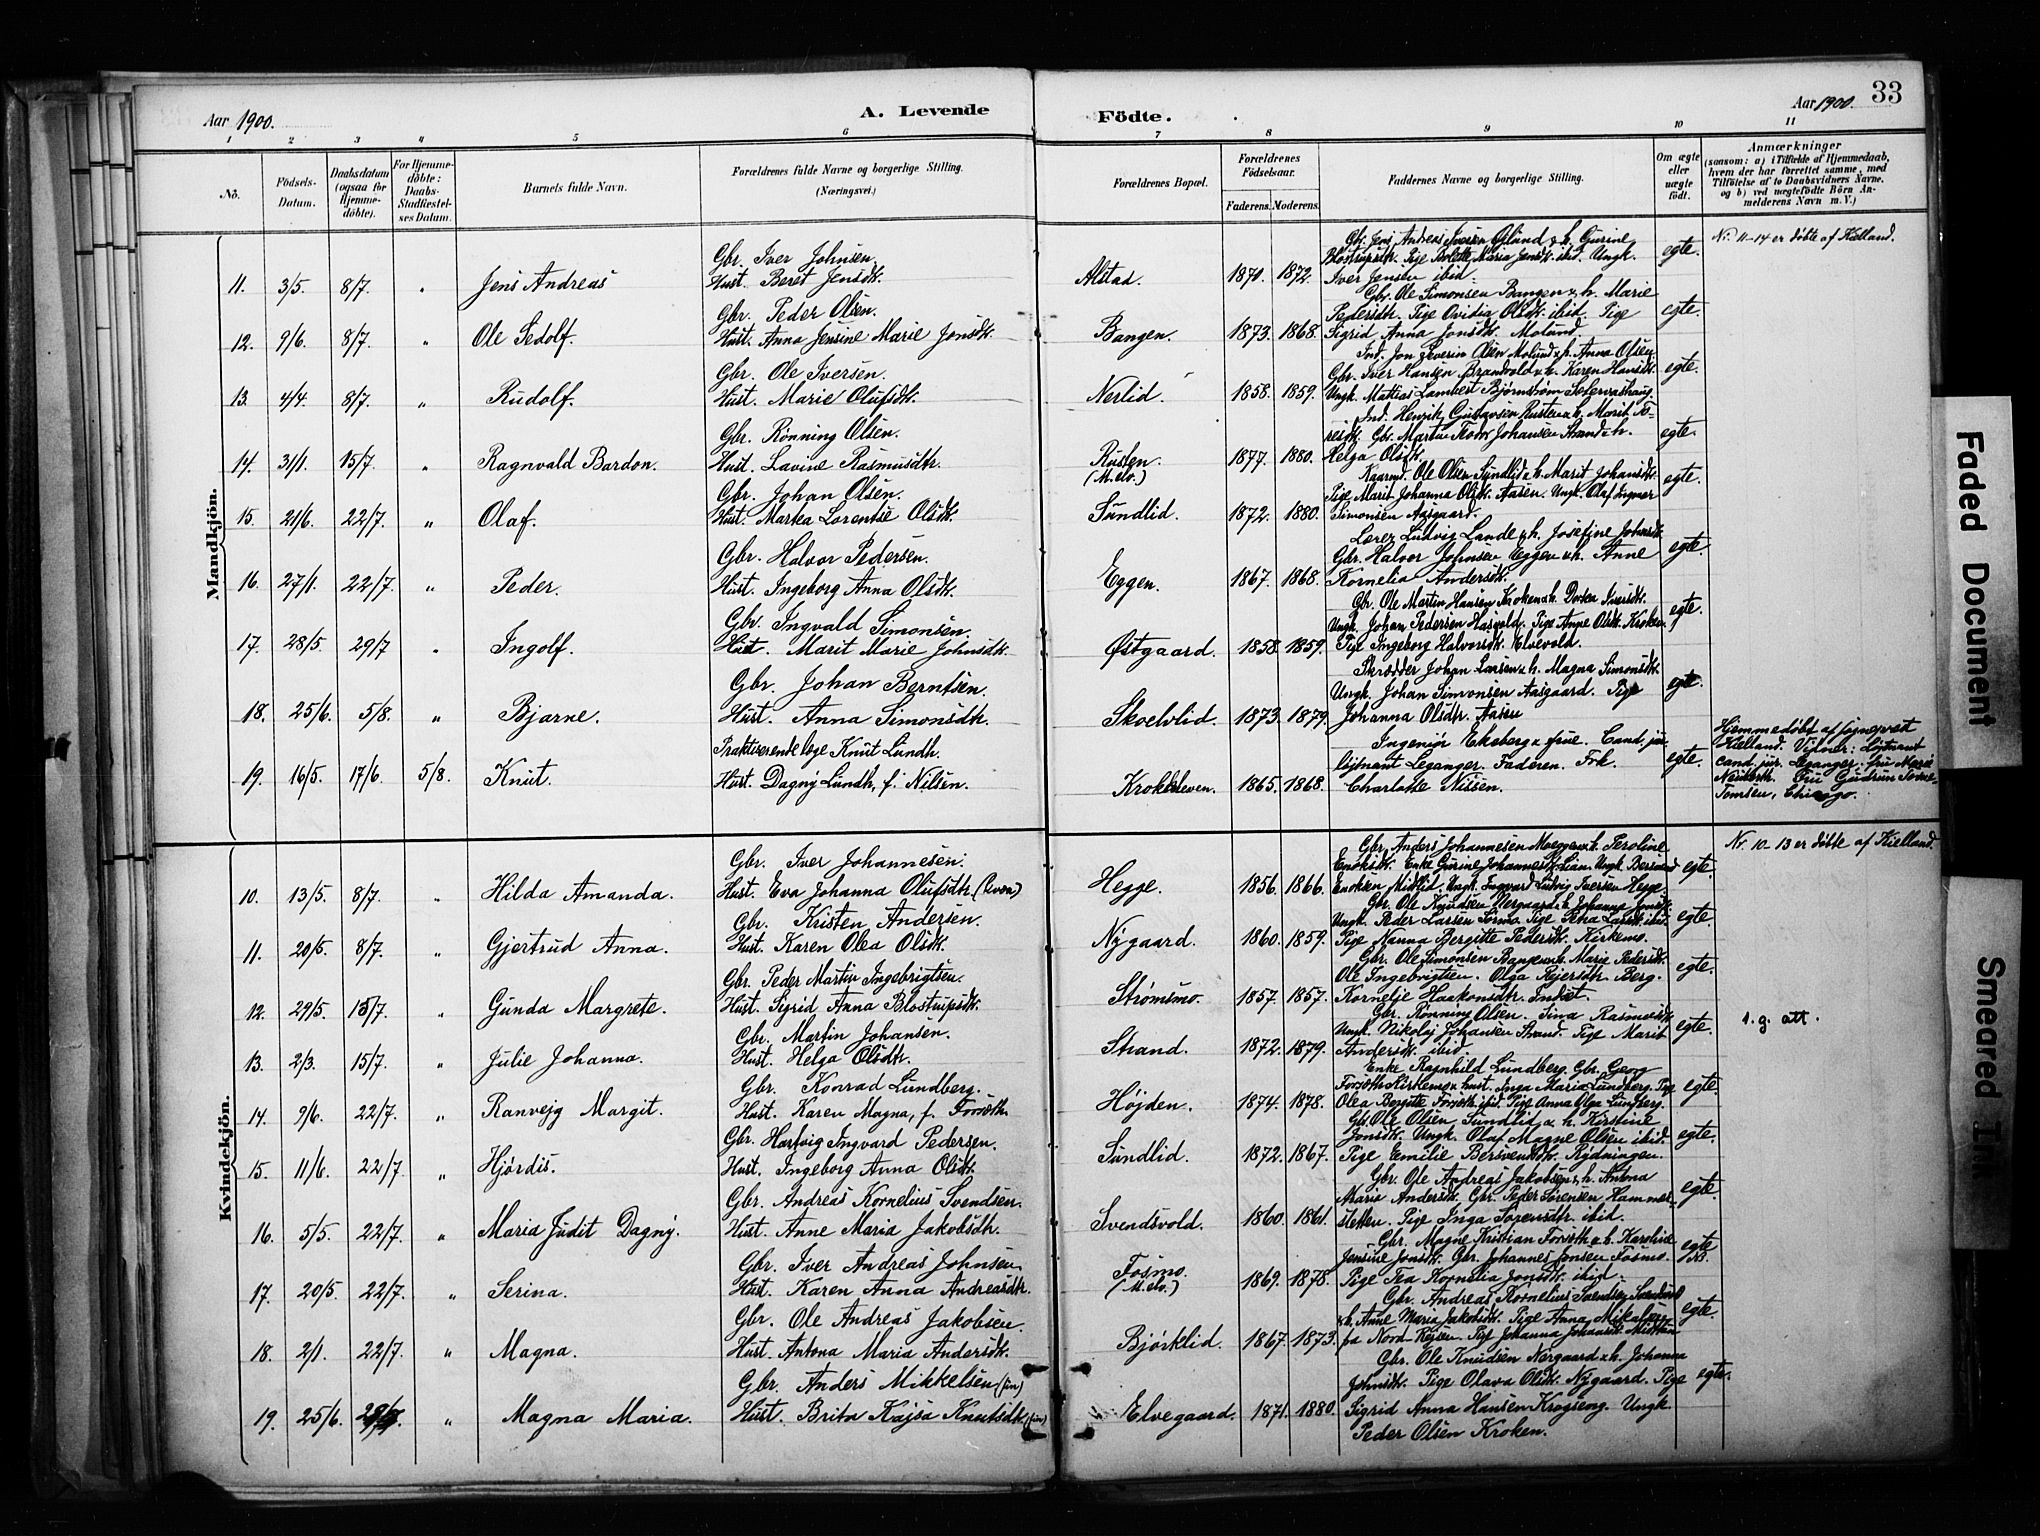 Aar 1900. A. Levende Födte. Aar 1900. 33
1 2 3 4 5 6 7 8 9 10 11
No. Födsels-Datum. Daabsdatum (ogsaa for Hjemme-döbte). For Hjemme-döbte: Daabs-Stadfæstel-ses Datum. Barnets fulde Navn. Forældrenes fulde Navne og borgerlige Stilling. (Næringsvei.) Forældrenes Bopæl. Forældrenes Födselsaar. Faderens. Moderens. Faddernes Navne og borgerlige Stilling. Om ægte eller uægte födt. Anmærkninger (saasom: a) i Tilfælde af Hjemmedaab, hvem der har forrettet samme, med Tilföielse af to Daabsvidners Navne, og b) ved uægtefödte Börn An-melderens Navn m. V.)
Mandkjön.
Gbr. Iver Johnsen. Gbr. Jens Andreas Iversen & h. Gurine
Nr. 11-14 er døbte af Kielland.
11. 3/5. 8/7. " Jens Andreas Hust. Beret Jensdtr. Alstad. 1870. 1872. Iver Jensen ibid. egte.
Gbr. Peder Olsen. Gbr. Ole Simonsen Bangen & h. Marie
Pedersdtr. Pige Ovidia Olsdtr. ibid. Pige
12. 9/6. 8/7. " Ole Sedolf. Hust. Anna Jensine Marie Jonsdtr. Bangen. 1873. 1868. Sigrid Anna Jonsdtr. Molund. egte.
Ind. Jon Severin Olsen Molund & h. Anna Olsen.
Gbr. Ole Iversen. Gbr. Iver Hansen Brandvold & h. Karen Hansdtr.
13. 4/4. 8/7. " Rudolf. Hust. Marie Olufsdtr. Nerlid. 1858. 1859. Ungk. Mattias Lambert Bjørnstrøm egte.
Ind. Henrik Gustavsen Rusten & h. Marit To-
Gbr. Rønning Olsen. resdtr. Gbr. Martin Johansen Strand & h.
14. 31/1. 15/7. " Ragnvald Bardon. Hust. Lavine Rasmusdtr. Rusten. (M.elv.) 1877. 1880. Helga Olsdtr. egte.
Kaarmd. Ole Olsen Sundlid & h. Marit Johansdtr.
Gbr. Johan Olsen. Pige Marit Johanna Olsdtr. Aasen. Ungk. Olaf Ingvar
15. 21/6. 22/7. " Olaf. Hust. Martea Lorentse Olsdtr. Sundlid. 1872. 1880. Simonsen Aasgaard. egte.
Lærer Ludvig Lande & h. Josefine
Gbr. Halvor Pedersen. Gbr. Halvor Johnsen Eggen & h. Anne
16. 27/1. 22/7. " Peder. Hust. Ingeborg Anna Olsdtr. Eggen. 1867. 1868. Kornelia Andersdtr. egte.
Gbr. Ole Martin Hansen Kroken & h. Dorthea Iversdtr.
Gbr. Ingvald Simonsen. Ungk. Johan Pedersen Pige Anne Olsdtr. Kroken.
17. 28/5. 29/7 " Ingolf. Hust. Marit Marie Johnsdtr. Østgaard. 1858. 1859. Pige Ingeborg Halvorsdtr. Elvevold. egte.
Skrædder Johan Larsen & h. Magna Simonsdtr.
Gbr. Johan Berntsen. Ungk. Johan Simonsen Aasgaard. Pige
18. 25/6. 5/8. " Bjarne. Hust. Anna Simonsdtr. Skoelvlid. 1873. 1879. Johanna Olsdtr. Aasen egte.
Praktiserende læge Knut Lundh. Ingeniør Ekeberg & frue. Cand. jur.
løjtnant Leganger. Faderen. Frk.
19. 16/5. 17/6. 5/8. Knut. Hust. Dagny Lundh, f. Nilsen. Krokeleven. 1865. 1868. Charlotte Nissen. egte.
Hjemmedøbt af sognepræst
Kielland. Vidner: Løjtnant
cand. jur. Leganger, fru Marie
Fru Gudrun
Tomsen, Chicago.
Kvindekjön.
Gbr. Anders Johannesen & h. Peroline
Nr. 10-13 er døbte af Kielland.
Gbr. Iver Johannesen. Enoksdtr. Enke Gurine Johannesdtr. Lian. Ungk.
10. 13/5. 8/7. " Hilda Amanda. Hust. Eva Johanna Olufsdtr. Hegge. 1856. 1866. Enoksen Midtlid. Ungk. Ingvard Ludvig Iversen Hegge. egte.
Gbr. Ole Knudsen Nergaard & h. Johanna Jonsdtr.
Gbr. Kristen Andersen. Ungk. Peder Larsen Sørmo. Pige Petra Larsdtr. ibid.
11. 20/5. 8/7. " Gjertrud Anna. Hust. Karen Olea Olsdtr. Nygaard. 1860. 1859. Pige Nanna Bergitte Pedersdtr. Kirkemo. egte.
Gbr. Ole Simonsen Bangen & h. Marie Pedersdtr.
Gbr. Peder Martin Ingebrigtsen. Ole Ingebrigtsen. Olga Pejersdtr. Berg.
12. 29/5. 15/7. " Gunda Margrete. Hust. Sigrid Anna Blostrupsdtr. Strømsmo. 1857. 1857. Kornelje Haakonsdtr. Indset. egte.
Gbr. Rønning Olsen. Sina Rasmusdtr.
1. g. att.
Gbr. Martin Johansen. Ungk. Nikolaj Johansen Strand. Pige Marit
13. 2/3. 15/7. " Julie Johanna. Hust. Helga Olsdtr. Strand. 1872. 1879. Andersdtr. ibid. egte.
Enke Ragnhild Lundberg. Gbr. Georg
Gbr. Konrad Lundberg. Forseth Kirkemo & hust. Inga Maria Lundberg. Pige
14. 9/6. 22/7. " Ranvejg Margit. Hust. Karen Magna, f. Forseth. Højden. 1874. 1878. Olea Bergitte Forseth ibid. Pige Anna Olga Lundberg. egte.
Gbr. Ole Olsen Sundlid & h. Kirstine
Gbr. Hartvig Ingvard Pedersen. Jonsdtr. Ungk. Olaf Magne Olsen ibid.
15. 11/6. 22/7. " Hjørdis. Hust. Ingeborg Anna Olsdtr. Sundlid. 1872. 1867. Pige Emilie Bersvendsdtr. Rydningen. egte.
Gbr. Ole Andreas Jakobsen & h. Antona
Gbr. Andreas Kornelius Svendsen. Marie Andersdtr. Gbr. Peder Sørensen Hammer-
16. 5/5. 22/7. " Maria Judit Dagny. Hust. Anne Maria Jakobsdtr. Svendsvold. 1860. 1861. sletten. Pige Inga Sørensdtr. ibid. egte.
Gbr. Magne Kristian Forseth & h. Karoline
Gbr. Iver Andreas Johnsen. Jensine Jonsdtr. Gbr. Johannes Jonsen Fosmo.
17. 20/5. 22/7. " Serina. Hust. Karen Anna Andreasdtr. Fosmo. (M.elv.) 1869. 1878. Pige Tea Kornelia Jonsdtr. ibid. egte
Gbr. Andreas Kornelius Svendsen Svendsvold
Gbr. Ole Andreas Jakobsen. & h. Anne Maria Jakobsdtr. Pige Anna Mikalsen
18. 2/1. 22/7. " Magna. Hust. Antona Maria Andersdtr. Bjørklid. 1867. 1873. fra Nord Rejsen. Pige Johanna Johansdtr. egte.
Gbr. Ole Knudsen Nergaard & h. Johanna
Gbr. Anders Mikkelsen (fin) Johnsdtr. Pige Olava Olsdtr. Nygaard. Pige
19. 25/6. " Magna Maria. Hust. Brita Kajsa Knutsdtr. (fin) Elvegaard. 1871. 1880. Sigrid Anna Hansen Krogseng. Ungk. egte.
Peder Olsen Kroken.
Faded Document
Smeared Ink